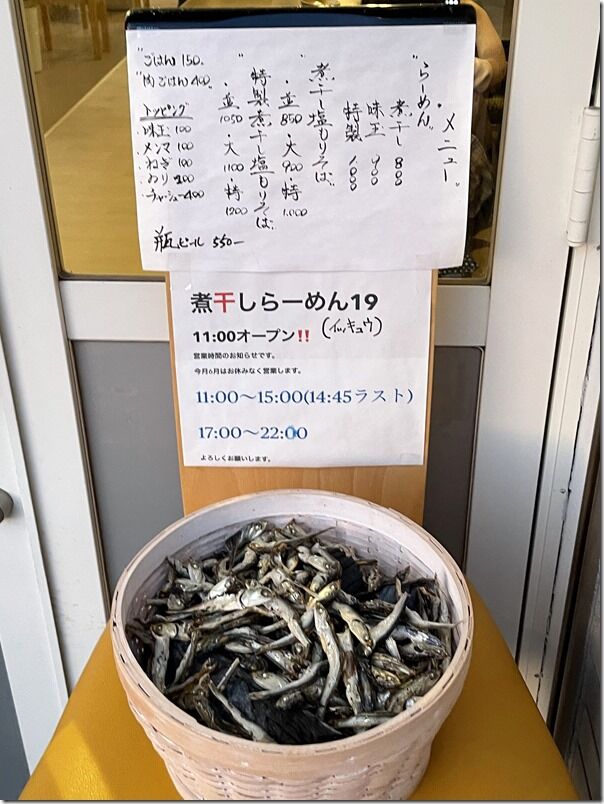 "メニュー"
"らーめん"
煮干し 800
味玉 900
特製 1000
"煮干し塩もりそば"
・並 850 ・大 900 ・特 1.000
特製煮干し塩もりそば
・並 1050 ・大 1100 ・特 1200
"ごはん 150.
"肉ごはん 400"
トッピング
・味玉 100
・メンマ 100
・ねぎ 100
・のり 200
・チャーシュー 400
瓶ビール 550-
煮干しらーめん19
(イッキュウ)
11:00オープン!!
営業時間のお知らせです。
今月6月はお休みなく営業します。
11:00〜15:00(14:45ラスト)
17:00〜22:00
よろしくお願いします。